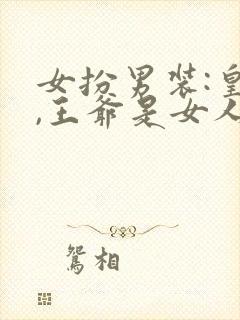 女扮男装:皇
,王爷是女人
鸳相